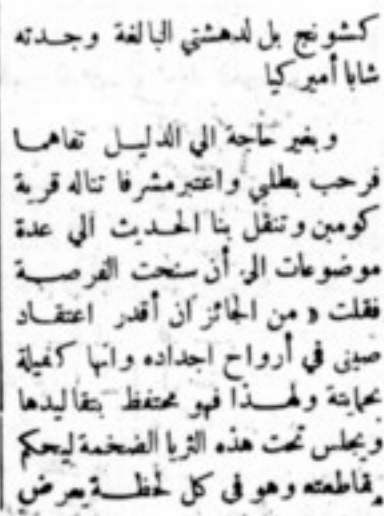 كشونج بل لدهشتي البالغة وجدته
شابا أميركيا
وبغير حاجة الي الدليل تفاهما
فرحب بطلبي واعتبر مشرفا تناله قرية
كومبن وتنقل بنا الحديث الي عدة
موضوعات الى أن سنحت الفرصة
فقلت « من الجائز ان أقدر اعتقاد
صينى في أرواح اجداده وانها كفيلة
بحمايته ولهذا فهو محتفظ بتقاليدها
ويجلس تحت هذه الثريا الضخمة ليحكم
مقاطعته وهو فى كل لحظة يعرض